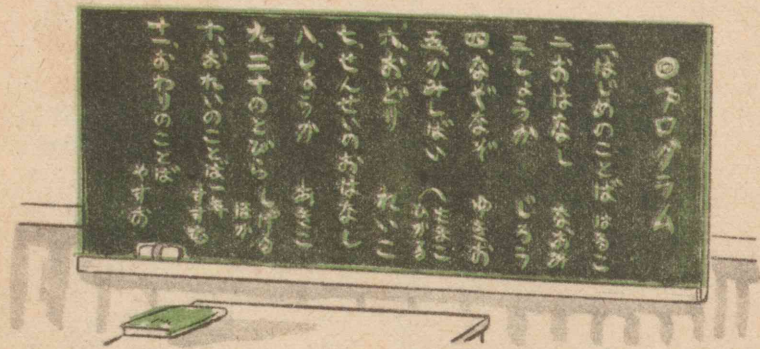 ◎プログラム
一、はじめのことば はるこ
二、おはなし なおみ
三、しょうか じろう
四、なぞなぞ ゆきお
五、かみしばい へ ひかる
六、おどり れいこ
七、せんせいのおはなし
八、しょうか あきこ
九、二十のとびら しげる ほか
十、おれいのことば 一年 すすむ
十一、おわりのことば やすお